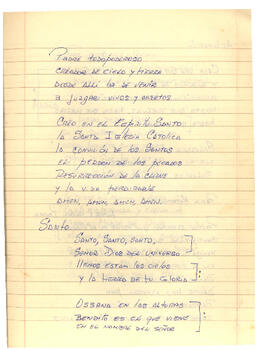 PADRE TODOPODEROSO
CREADOR DE CIELO Y TIERRA
DESDE ALLI HA DE VENIR
A JUZGAR VIVOS Y MUERTOS
CREO EN EL ESPIRITU SANTO
LA SANTA IGLESIA CATOLICA
LA COMUNION DE LOS SANTOS
EL PERDON DE LOS PECADOS
RESURRECCION DE LA CARNE
Y LA VIDA PERDURABLE
AMEN, AMEN, AMEN, AMEN.
SANTO
SANTO, SANTO, SANTO,
SEÑOR DIOS DEL UNIVERSO
LLENOS ESTAN LOS CIELOS
Y LA TIERRA DE TU GLORIA
OSSANA EN LAS ALTURAS
BENDITO ES EL QUE VIENE
EN EL NOMBRE DEL SEÑOR